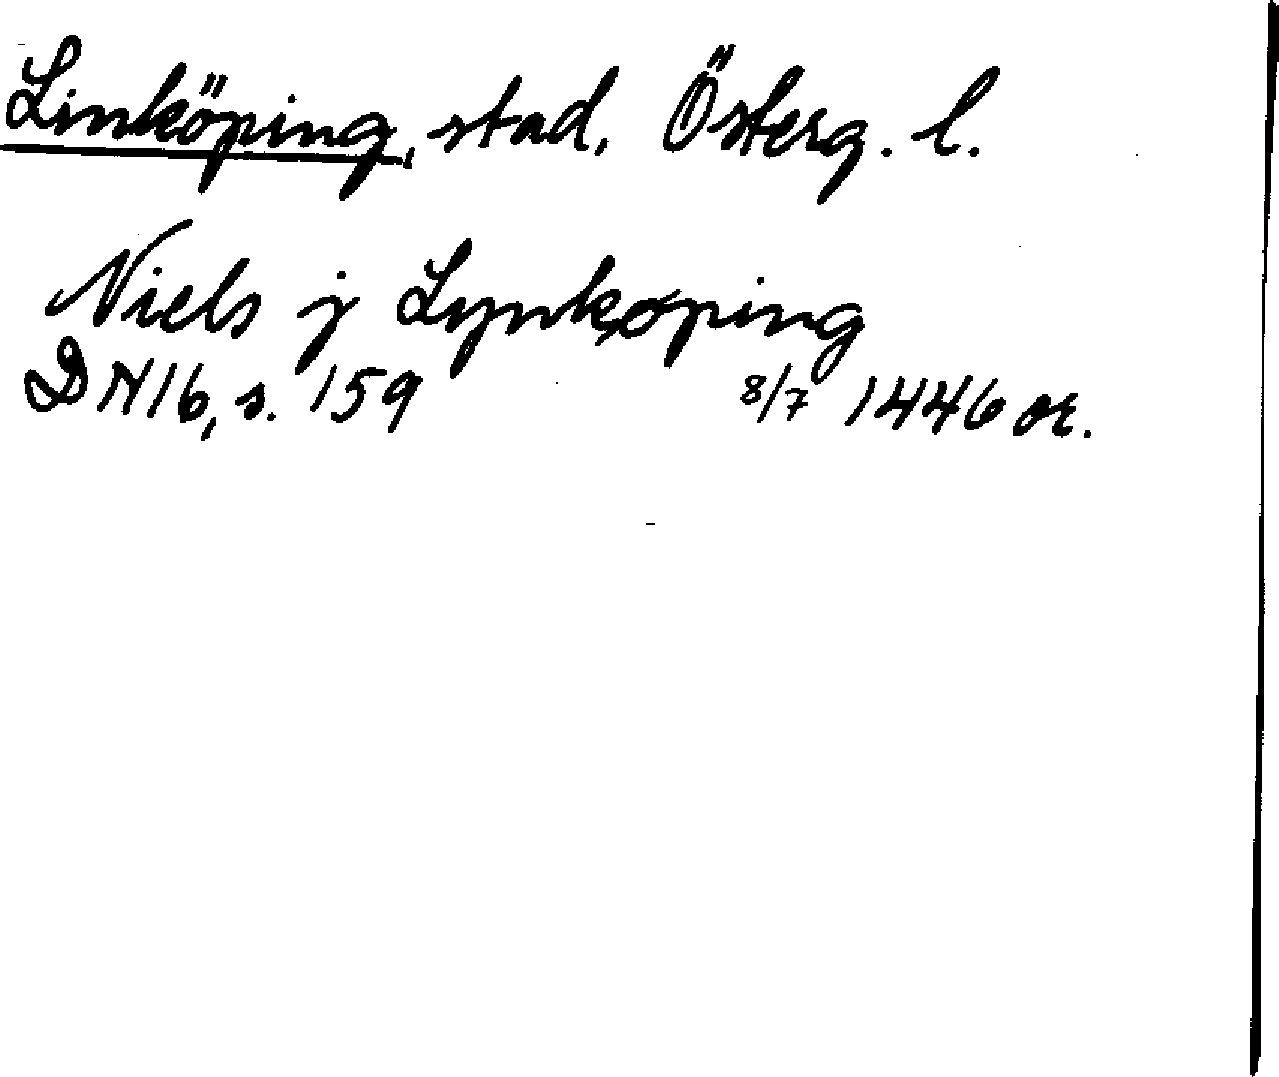 Linköping, stad, Österg. l.
Niels j Lynkøping
DN16, s. 159 8/7 1446 or.